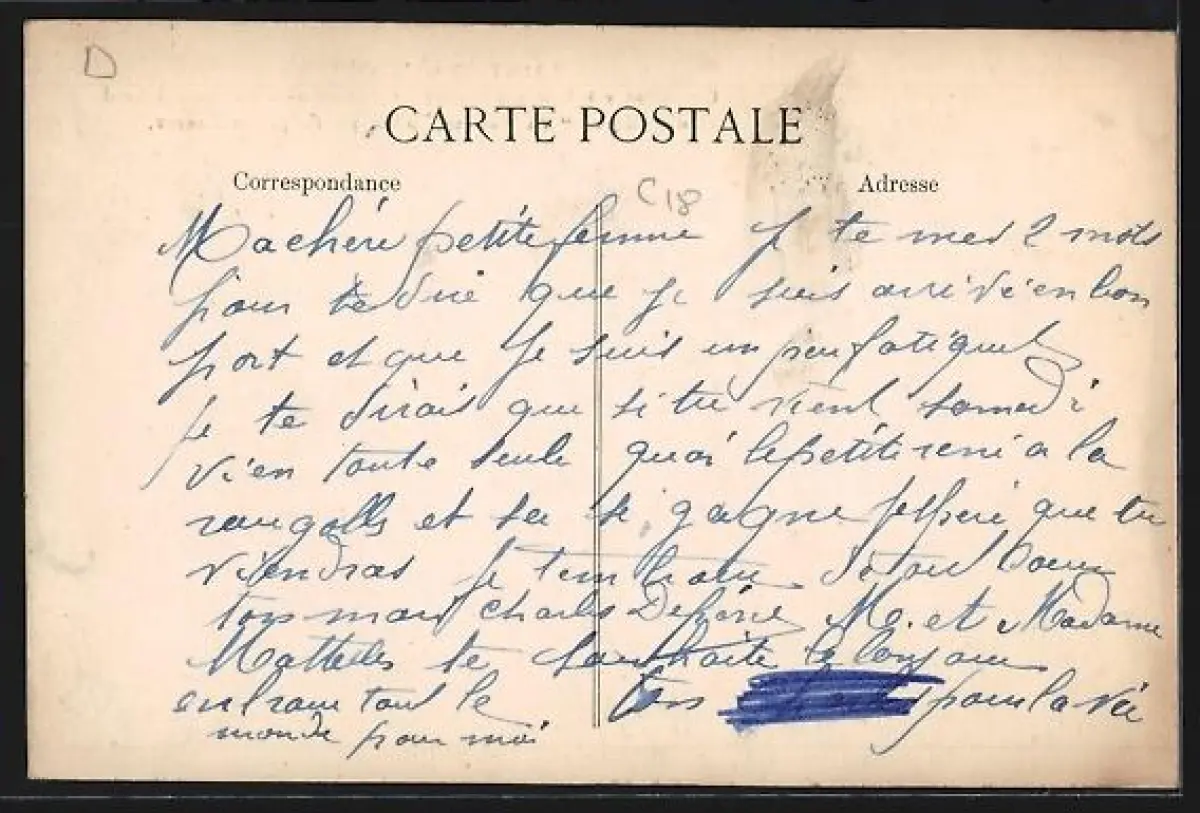 D
CARTE POSTALE
Correspondance
Adresse
C18
Ma chère petite femme je te mes 2 mots
pour te dire que je suis arrivé en bon
port et que je suis un peu fatigué
je te dirais que si tu vient samedi
vien toute seule le petit rené a la
et sa se gagne jesper que tu
viendras je tembrasse de tout coeur
ton mari Charles M. et Madame
te souhaite le bonjour
enbrasse tout le
ton pour la vie
monde pour moi